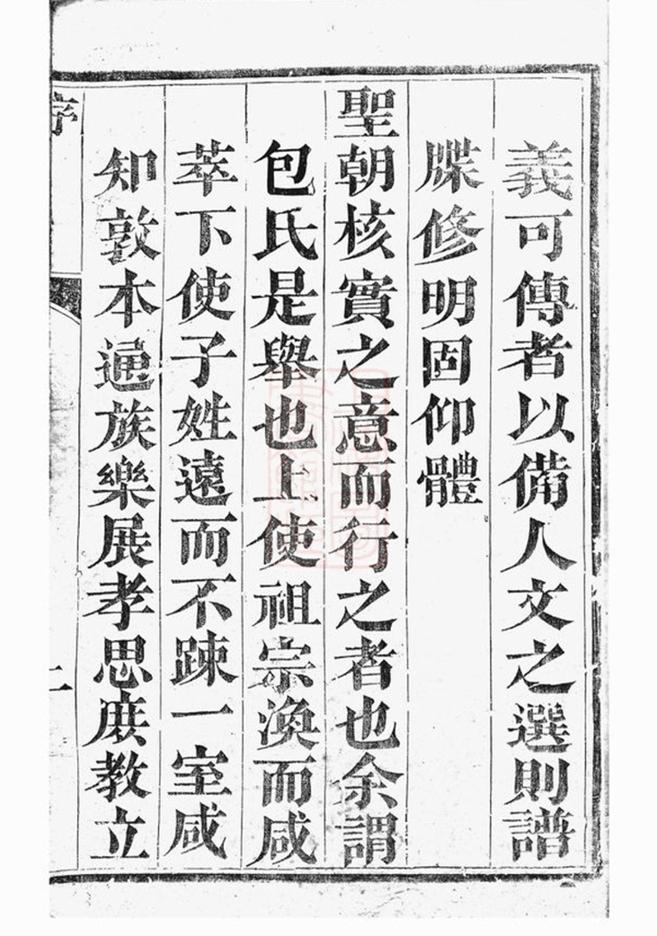 義可傳者以備人文之選則譜
牒修明固仰體
聖朝核實之意而行之者也余謂
包氏是舉也上使祖宗渙而咸
萃下使子姓遠而不踈一室咸
知敦本通族樂展孝思庶教立
序
二